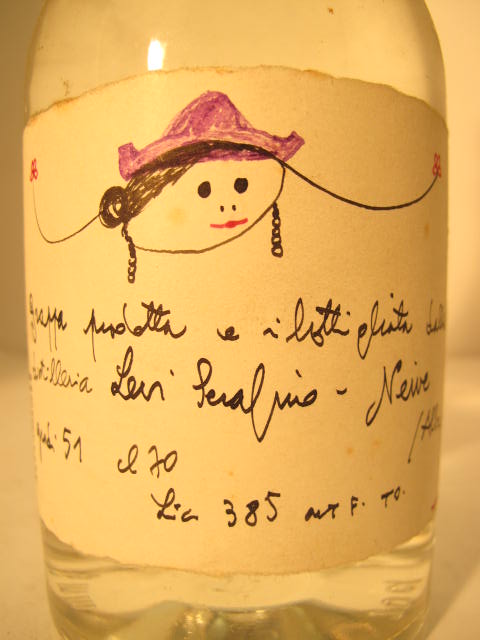 grappa prodotta e imbottigliata dalla
distilleria Levi Serafino - Neive
gradi 51 cl 70
Lic 385 aut F. TO.